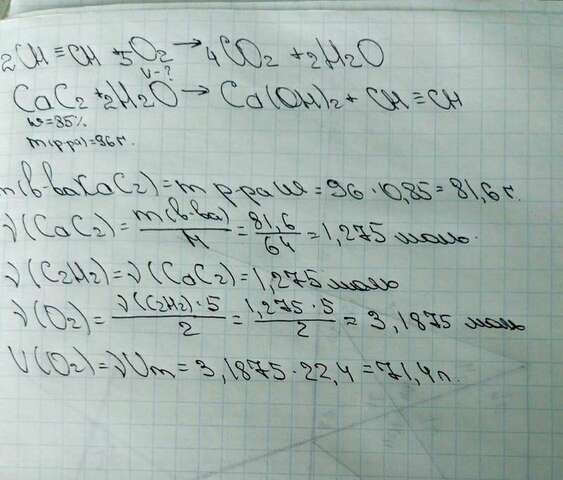 2CH≡CH + 5O₂ → 4CO₂ + 2H₂O
V-?
CaC₂ + 2H₂O → Ca(OH)₂ + CH≡CH
w=85%
m(р-ра)=96г.
m(в-ва CaC₂) = m р-ра·ω = 96·0,85 = 81,6г.
ν(CaC₂) = m(в-ва)/M = 81,6/64 = 1,275 моль.
ν(C₂H₂) = ν(CaC₂) = 1,275 моль
ν(O₂) = ν(C₂H₂)·5/2 = 1,275·5/2 = 3,1875 моль
V(O₂) = νVm = 3,1875·22,4 = 71,4л.